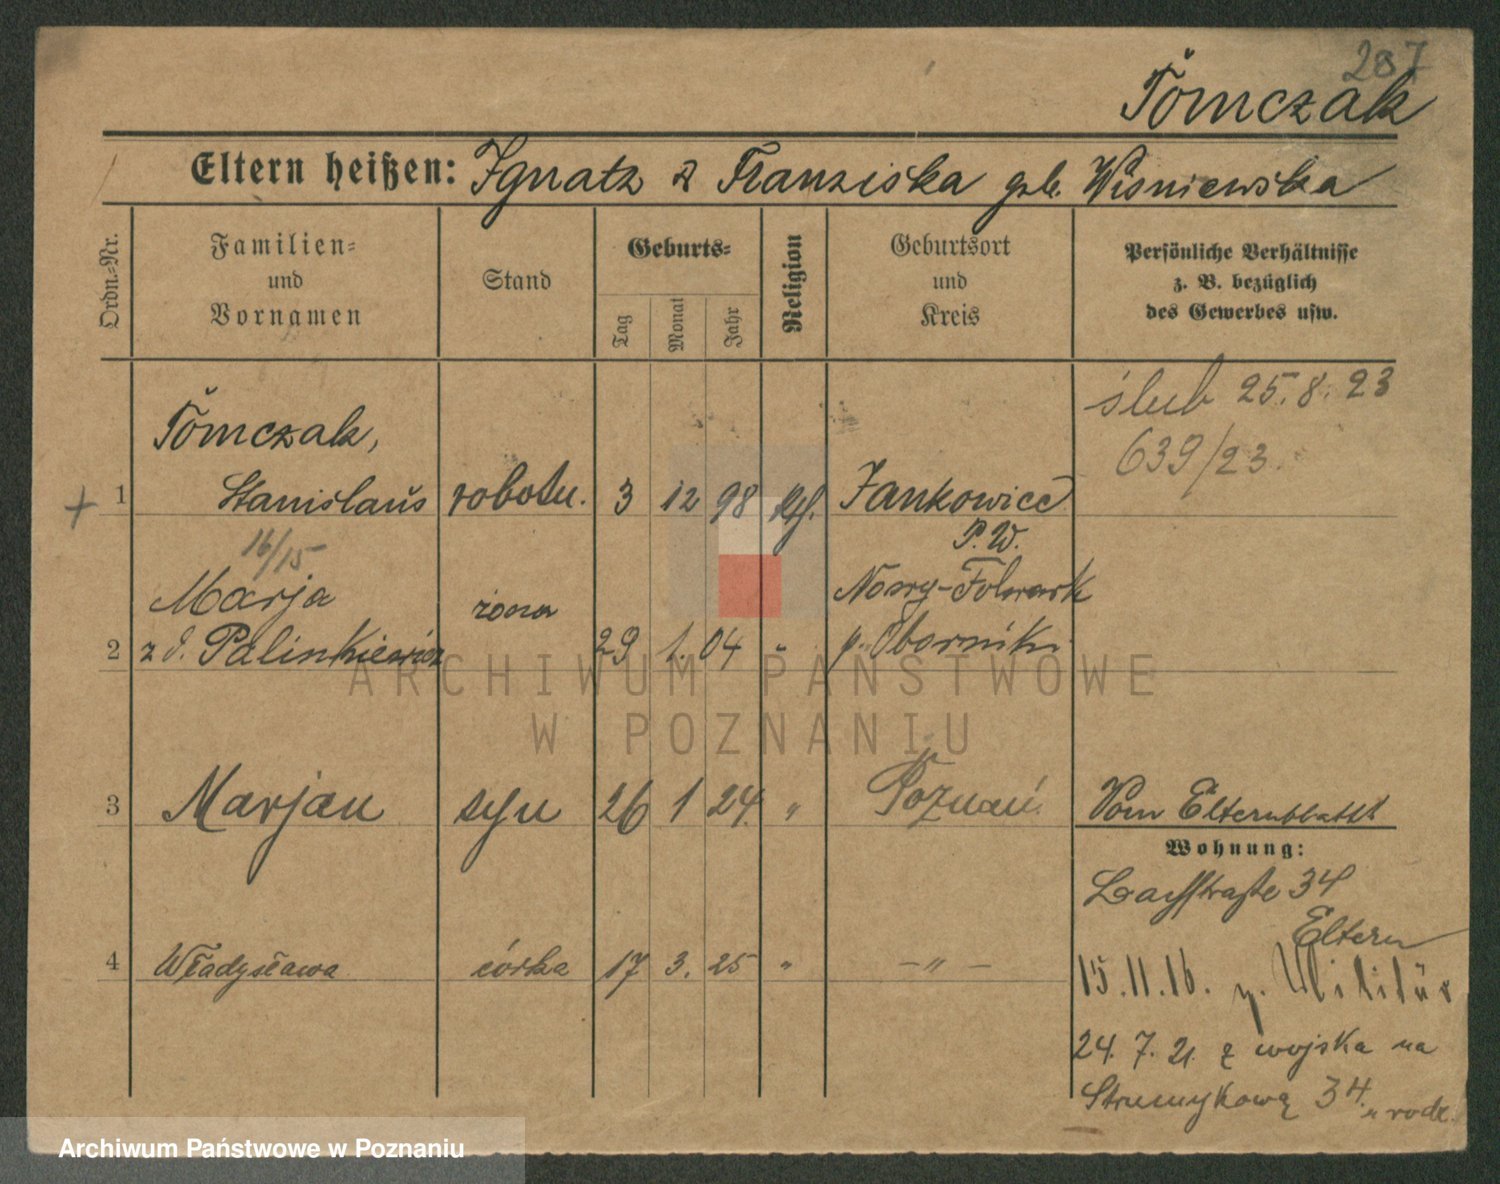 287
Tomczak
Eltern heißen: Ignatz & Franziska geb. Wisniewska
Ordn.-Nr.
Familien- und Vornamen
Stand
Geburts-
Tag
Monat
Jahr
Religion
Geburtsort und Kreis
Persönliche Verhältnisse z. B. bezüglich des Gewerbes usw.
ślub 25.8.23
639/23.
Tomczak,
+ 1 Stanislaus robotn. 3 12 98 Jankowice
P.W.
16/15
Marja żona Nowy-Folwark
2 z d. Palinkiewicz 29 1. 04 " p. Oborniki
3 Marjan syn 26 1 24. " Poznań.
Vom Elternblatt
Wohnung:
Bachstraße 34
Eltern
4 Władysława córka 17 3. 25 " – " –
15.11.16. z. Militär
24. 7. 21. z wojska na
Strumykową 34. u rodz.
ARCHIWUM PAŃSTWOWE
W POZNANIU
Archiwum Państwowe w Poznaniu